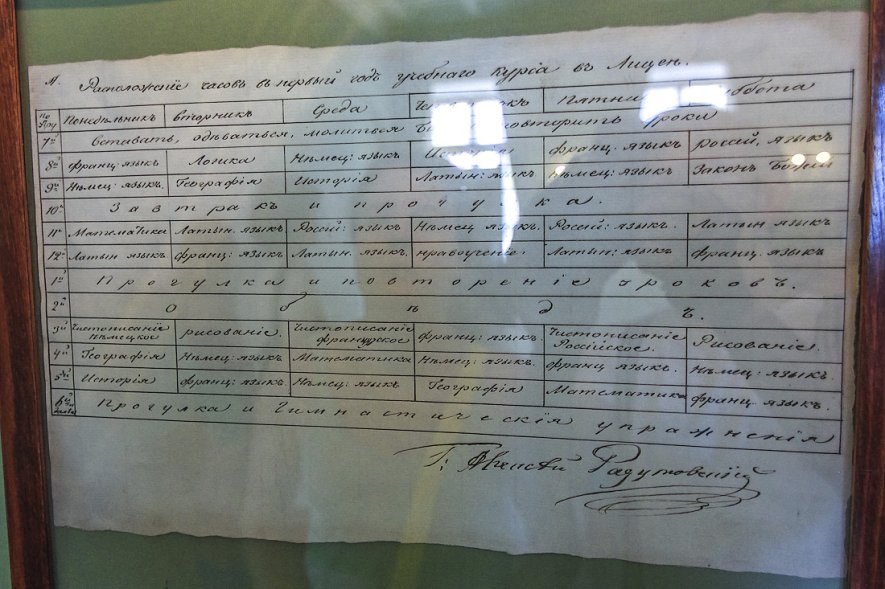 Расположеніе часовъ въ первый годъ учебнаго курса въ Лицеи.
Понедѣльникъ Вторникъ Среда Пятни ббота
7й Вставать, одѣваться, молиться повторить уроки
8й Франц: языкъ Логика Нѣмец: языкъ Франц: языкъ Россій, языкъ
9й Нѣмец: языкъ. Географія Исторія Латын: языкъ Нѣмец: языкъ Законъ Божій
10й Завтракъ и прогулка.
11й Математика Латын. языкъ Россій: языкъ Нѣмец языкъ. Россій: языкъ. Латын языкъ
12й Латын языкъ Франц: языкъ. Латын. языкъ. нравоученіе. Латын: языкъ. франц: языкъ.
1й Прогулка и повтореніе уроковъ.
2й Обѣдъ.
3й Чистописаніе нѣмецкое рисованіе. Чистописаніе французское франц: языкъ. Чистописаніе Россійское. Рисованіе.
4й Географія Нѣмец: языкъ. Математика Нѣмец: языкъ. франц языкъ. Нѣмец: языкъ.
5й Исторія франц: языкъ Нѣмец: языкъ Географія Математика франц: языкъ.
6й Прогулка и Гимнастическія упражненія